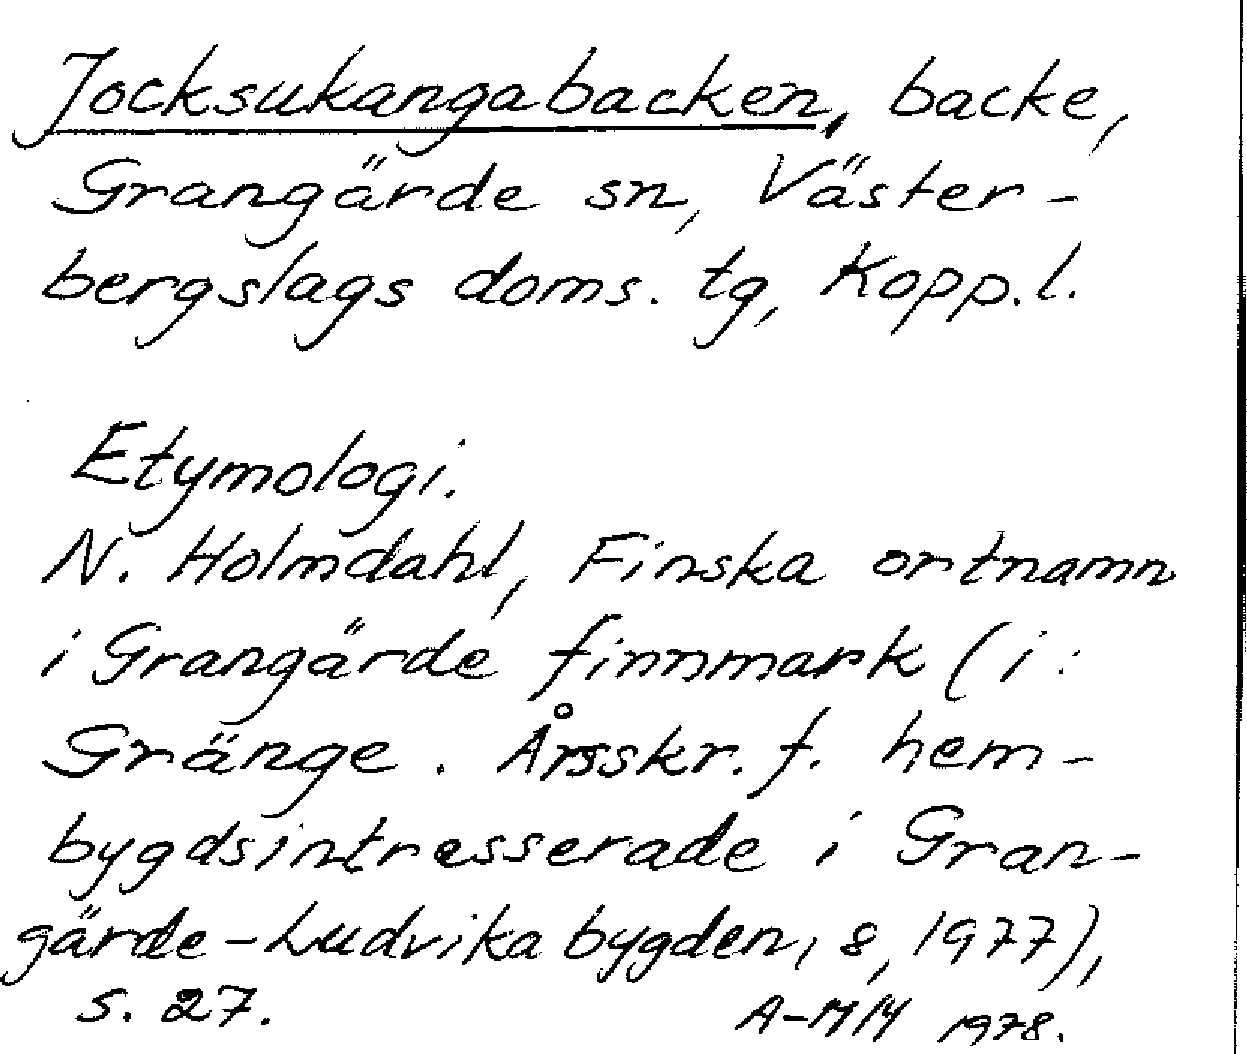 Jocksukangabacken, backe,
Grangärde sn, Väster-
bergslags doms. tg, Kopp.l.
Etymologi.
N. Holmdahl, Finska ortnamn
i Grangärde finnmark (i:
Gränge. Årsskr. f. hem-
bygdsintresserade i Gran-
gärde-Ludvikabygden, 8, 1977),
s. 27.
1978.